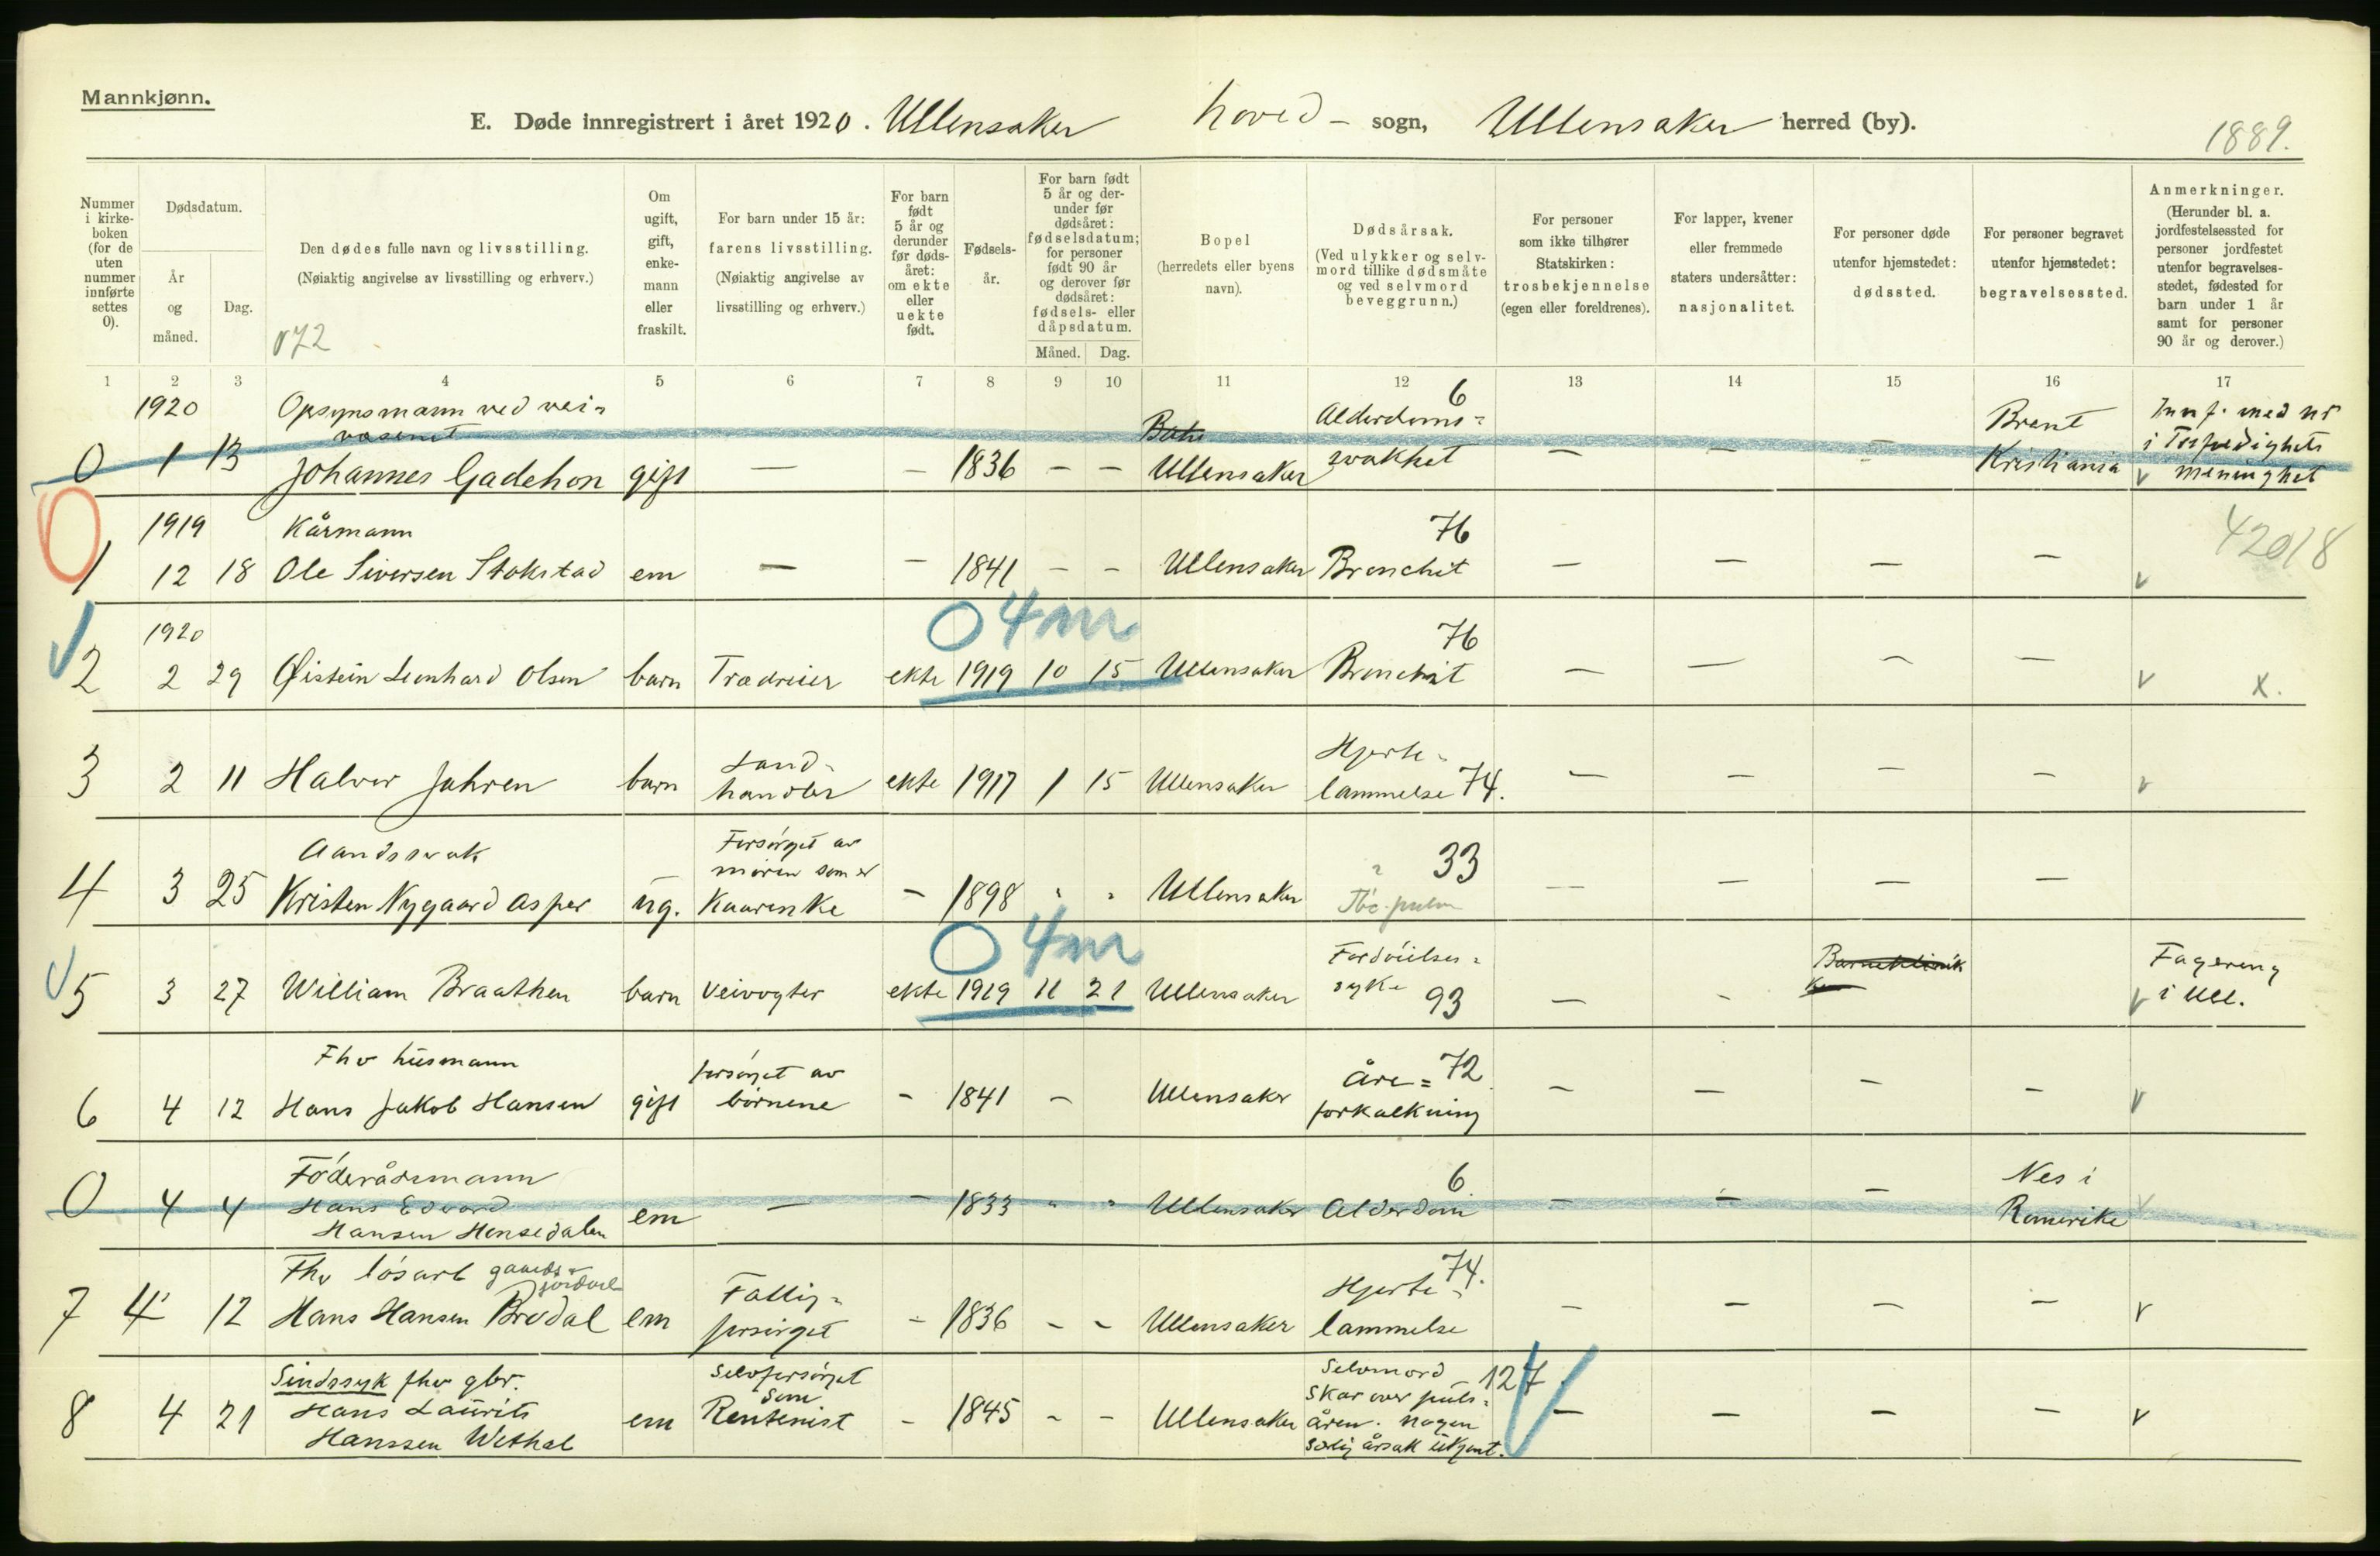 Mannkjønn.
E. Døde innregistrert i året 1920. Ullensaker hoved- sogn, Ullensaker herred (by).
1889.
Nummer i kirkeboken (for de uten nummer innførte settes 0).
Dødsdatum.
År og måned.
Dag.
Den dødes fulle navn og livsstilling.
(Nøiaktig angivelse av livsstilling og erhverv.)
072
Om ugift, gift, enkemann eller fraskilt.
For barn under 15 år: farens livsstilling.
(Nøiaktig angivelse av livsstilling og erhverv.)
For barn født 5 år og derunder før dødsåret: om ekte eller uekte født.
Fødselsår.
For barn født 5 år og derunder før dødsåret: fødselsdatum; for personer født 90 år og derover før dødsåret: fødsels- eller dåpsdatum.
Måned. Dag.
Bopel (herredets eller byens navn).
Dødsårsak.
(Ved ulykker og selvmord tillike dødsmåte og ved selvmord beveggrunn.)
For personer som ikke tilhører Statskirken: trosbekjennelse (egen eller foreldrenes).
For lapper, kvener eller fremmede staters undersåtter: nasjonalitet.
For personer døde utenfor hjemstedet: dødssted.
For personer begravet utenfor hjemstedet: begravelsessted.
Anmerkninger.
(Herunder bl. a. jordfestelsessted for personer jordfestet utenfor begravelsesstedet, fødested for barn under 1 år samt for personer 90 år og derover.)
1 2 3 4 5 6 7 8 9 10 11 12 13 14 15 16 17
1920 Opsynsmann ved vei- Alderdoms- 6 Brent Innf. med nr
væsenet i
0 1 13 Johannes Gadehon gift — – 1836 – – Ullensaker svakhet – – – Kristiania v menighet
1919 Kårmann 76 42018
1 12 18 Ole Siversen Stokstad em — – 1841 – – Ullensaker Bronchit – – – – v
1920 0 4 mn 76
2 2 29 Øistein Leonhard Olsen barn Trædreier ekte 1919 10 15 Ullensaker Bronchit – – – – v x.
Land- Hjerte-
3 2 11 Halvor Jahren barn handler ekte 1917 1 15 Ullensaker lammelse 74. – – – – v
Aandssvak Forsørget av moren som er 33
4 3 25 Kristen Nygaard Asper ug. Kaarenke – 1898 " " Ullensaker Tbc. pulm – – – –
0 4 mn Fordøielses- Barneklinik Fagereng
5 3 27 William Braathen barn Veivogter ekte 1919 11 21 Ullensaker syke 93 – – v i Ull.
Fhv husmann forsørget av Åre- 72
6 4 12 Hans Jakob Hansen gift börnene – 1841 – Ullensaker forkalkning – – – – v
Föderådsmann 6 Nes i
0 4 4 Hans Edvard em — – 1833 " " Ullensaker Alderdom – – – Romerike v
Hansen Hensedalen
Fhv lösarb gaards- jordarb Fattig- Hjerte- 74.
7 4 12 Hans Hansen Brodal em forsörget – 1836 – – Ullensaker lammelse – – – – v
Sindssyk fhv gbr. Selvforsörget som Selvmord 127
Skar over puls-
8 4 21 Hans Laurits em Rentenist – 1845 – – Ullensaker åren. Nogen – – – – v
Hanssen Wethal særlig årsak ukjent.